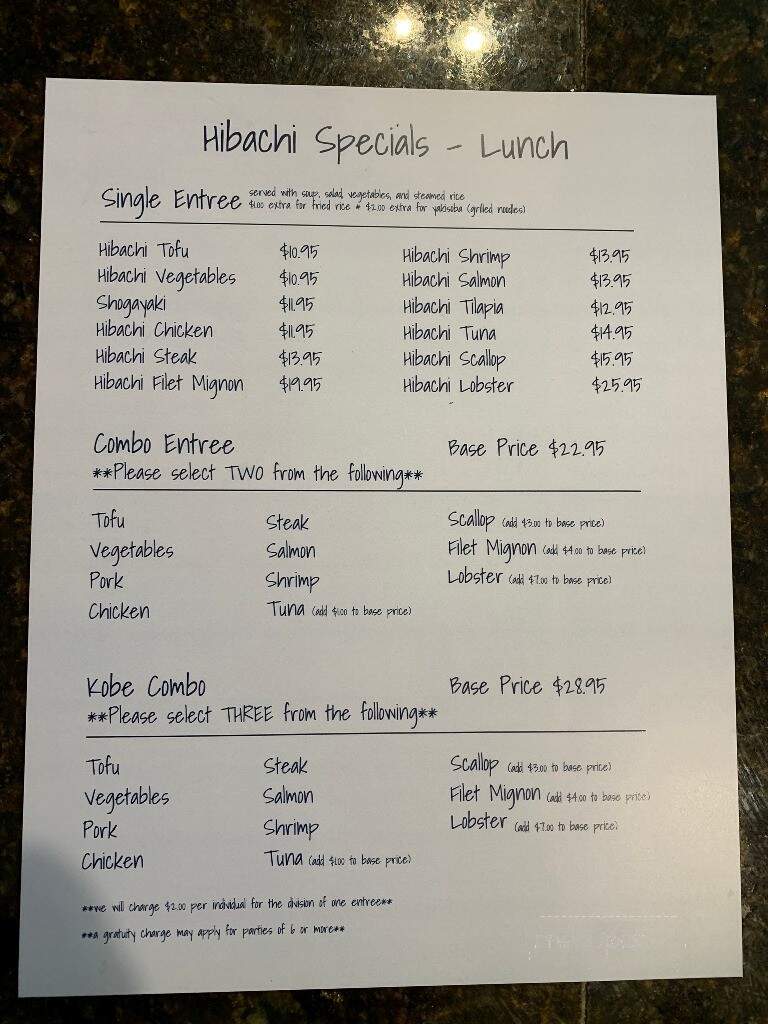 Hibachi Specials - Lunch
Single Entree served with soup, salad, vegetables, and steamed rice
$1.00 extra for fried rice * $2.00 extra for yakisoba (grilled noodles)
Hibachi Tofu $10.95 Hibachi Shrimp $13.95
Hibachi Vegetables $10.95 Hibachi Salmon $13.95
Shogayaki $11.95 Hibachi Tilapia $12.95
Hibachi Chicken $11.95 Hibachi Tuna $14.95
Hibachi Steak $13.95 Hibachi Scallop $15.95
Hibachi Filet Mignon $19.95 Hibachi Lobster $25.95
Combo Entree Base Price $22.95
**Please select TWO from the following**
Tofu Steak Scallop (add $3.00 to base price)
Vegetables Salmon Filet Mignon (add $4.00 to base price)
Pork Shrimp Lobster (add $7.00 to base price)
Chicken Tuna (add $1.00 to base price)
Kobe Combo Base Price $28.95
**Please select THREE from the following**
Tofu Steak Scallop (add $3.00 to base price)
Vegetables Salmon Filet Mignon (add $4.00 to base price)
Pork Shrimp Lobster (add $7.00 to base price)
Chicken Tuna (add $1.00 to base price)
**we will charge $2.00 per individual for the division of one entree**
**a gratuity charge may apply for parties of 6 or more**